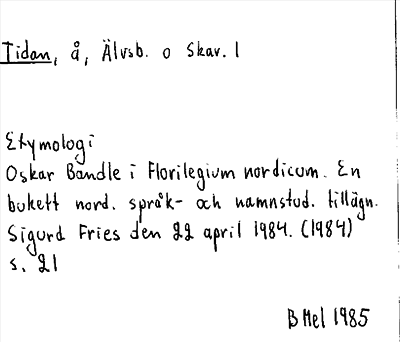 Tidan, å, Älvsb. o Skar. l
Etymologi
Oskar Bandle i Florilegium nordicum. En
bukett nord. språk- och namnstud. tillägn.
Sigurd Fries den 22 april 1984. (1984)
s. 21
B Mel 1985